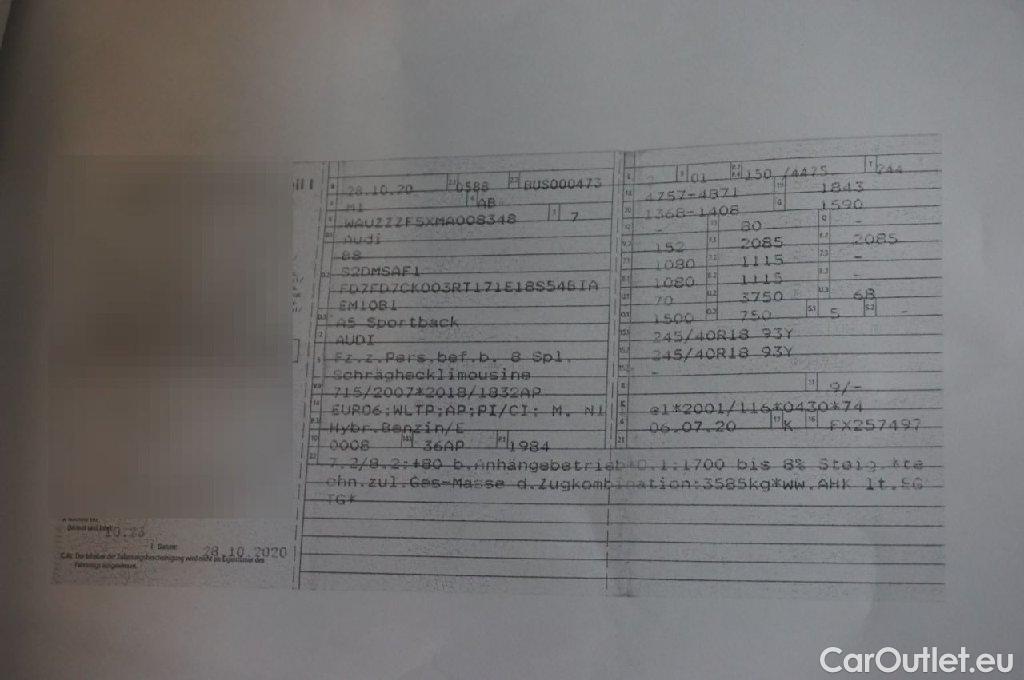 28.10.20 0588 BUS000473
M1 AB
WAUZZZF5XMA008348 7
Audi
B8
S2DMSAF1
FD7FD7CK003RT171E18S54BIA
EM10B1
A5 Sportback
AUDI
Fz.z.Pers.bef.b. 8 Spl.
Schräghecklimousine
715/2007*2018/1832AP
EURO6;WLTP;AP;PI/CI; M, N1
Hybr.Benzin/E
0008 36AP 1984
01 150 /4475 244
4757-4871 1843
1368-1408 1590
- 80 -
152 2085 2085
1080 1115 -
1080 1115 -
70 3750 68
1500 750 5 -
245/40R18 93Y
245/40R18 93Y
-
9/-
e1*2001/116*0430*74
06.07.20 K FX257497
7.2/8.2:*80 b.Anhängebetrieb*O.1:1700 bis 8% Steig.*te
chn.zul.Ges-Masse d.Zugkombination:3585kg*WW.AHK lt.EG
TG*
10.23
Datum:
28.10.2020
C.4c: Der Inhaber der Zulassungsbescheinigung wird nicht als Eigentümer des
Fahrzeugs ausgewiesen.
CarOutlet.eu